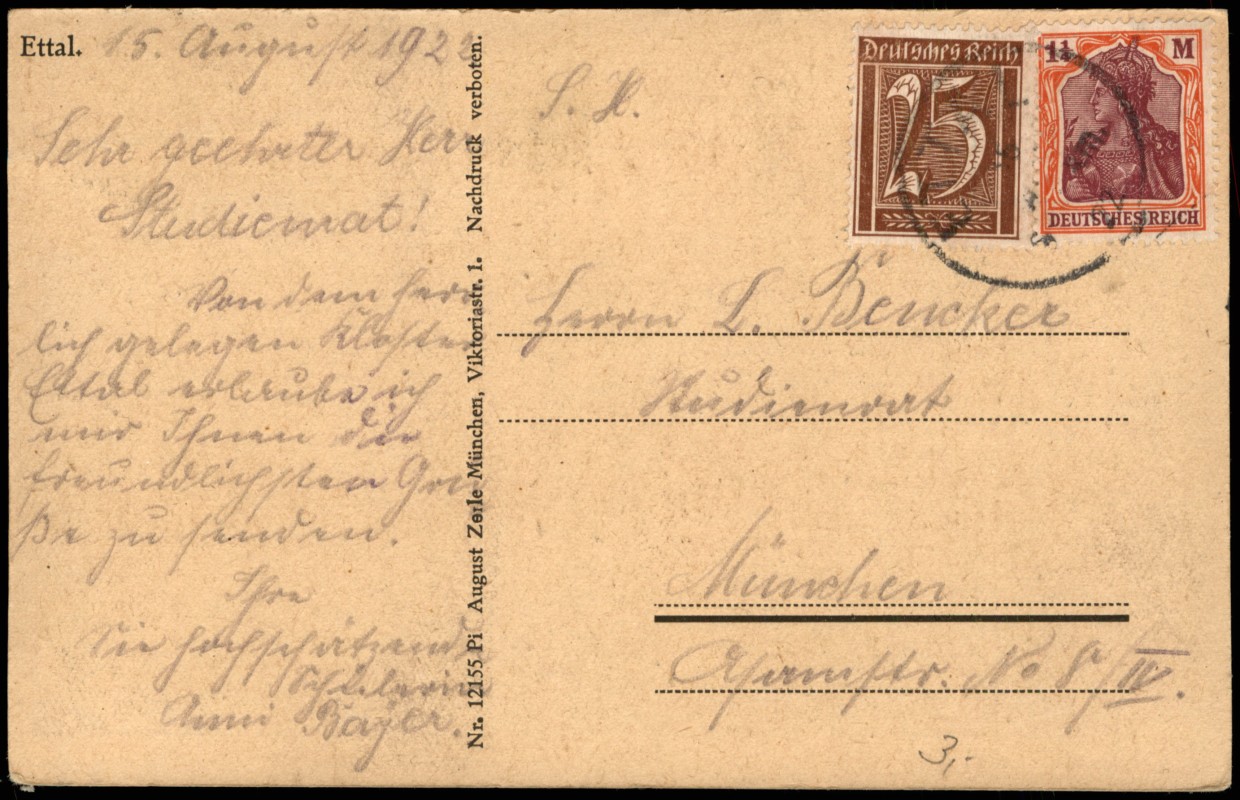 Ettal. 15. August 1922
Sehr geehrter Herr
Studienrat!
Von dem herr
lich gelegen Kloster
Ettal erlaube ich
mir Ihnen die
freundlichsten Grü
ße zu senden.
Ihre
Sie hochschätzende
Schülerin
Anni Bayer.
Nr. 12155 Pi August Zerle München, Viktoriastr. 1. Nachdruck verboten.
S. H.
Deutsches Reich
25
1¼ M
DEUTSCHES REICH
Herrn L. Bencker
Studienrat
München
Asamstr. No 8/III.
3,-